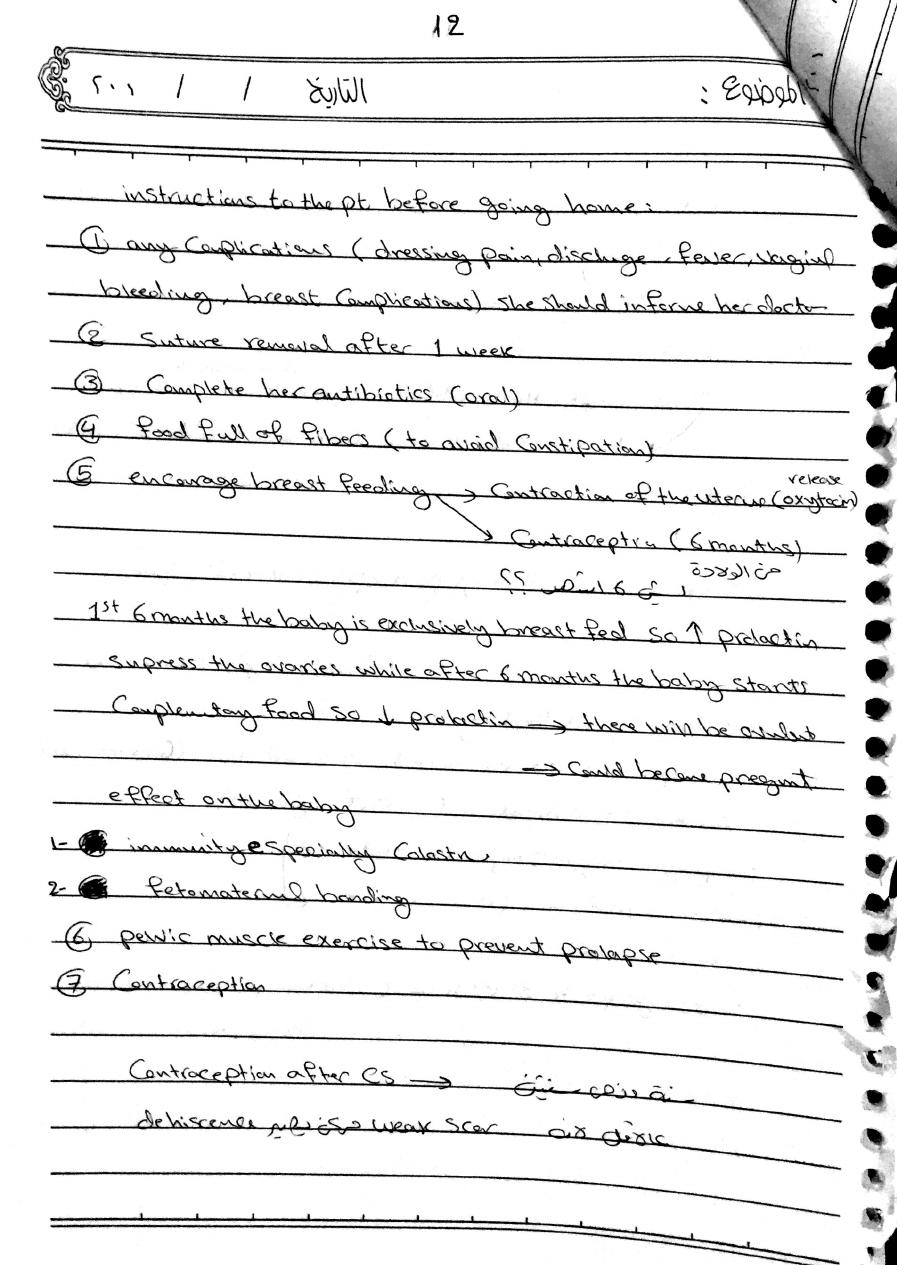 12
الموضوع : التاريخ / / ٢٠٠١
instructions to the pt before going home:
① any Complications (dressing pain, discharge, fever, vaginal
bleeding, breast Complications) she should informe her docto
② Suture removal after 1 week
③ Complete her antibiotics (oral)
④ food full of fibers (to avoid Constipation)
⑤ encourage breast feeding → Contraction of the uterus (release oxytocin)
↘ Contraception (6 months)
من الولادة
6 ؟؟
1st 6 months the baby is exclusively breast fed so ↑ prolactin
supress the ovaries while after 6 months the baby starts
Complemtary food so ↓ prolactin → there will be ovulat
→ Could become pregnant
effect on the baby
1- immunity especially Colostru
2- fetomaternal bonding
⑥ pelvic muscle exercise to prevent prolapse
⑦ Contraception
Contraception after CS →
weak scar dehiscence